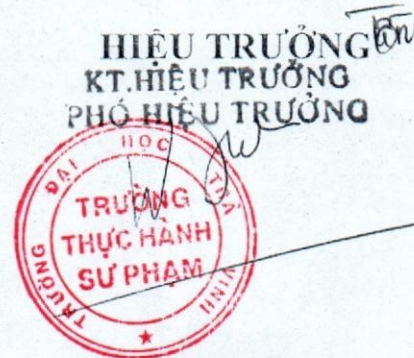 HIỆU TRƯỞNG
KT.HIỆU TRƯỞNG
PHÓ HIỆU TRƯỞNG
TRƯỜNG ĐẠI HỌC TRÀ VINH
TRƯỜNG
THỰC HÀNH
SƯ PHẠM